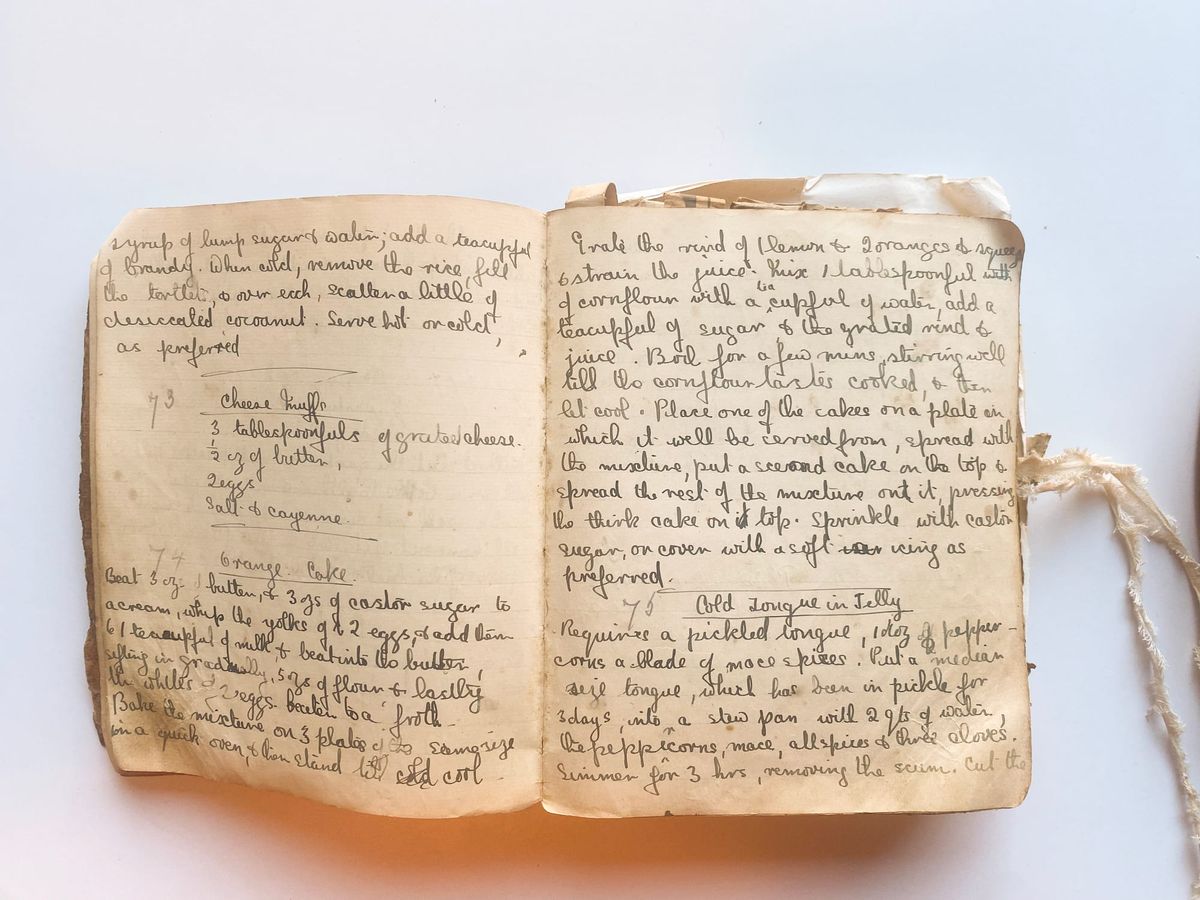 syrup of lump sugar & water; add a teacupful
of brandy. When cold, remove the rice, fill
the tartlets, & over each, scatter a little of
desiccated cocoanut. Serve hot or cold,
as preferred
73
Cheese Snuffs
3 tablespoonfuls of grated cheese.
1/2 oz of butter,
2 eggs
Salt & cayenne.
74
Orange Cake.
Beat 3 oz. butter, & 3 ozs of castor sugar to
a cream, whip the yolks of 2 eggs, & add them
to 1 teacupful of milk, & beat into the butter,
sifting in gradually, 5 ozs of flour & lastly
the whites of 2 eggs beaten to a froth
Bake the mixture on 3 plates of same size
in a quick oven, & then stand till cool
Grate the rind of 1 lemon & 2 oranges & squeeze
& strain the juice. Mix 1 tablespoonful
of cornflour with a tea cupful of water, add a
teacupful of sugar & the grated rind &
juice. Boil for a few mins, stirring well
till the cornflour tastes cooked, & then
let cool. Place one of the cakes on a plate on
which it will be served from, spread with
the mixture, put a second cake on the top &
spread the rest of the mixture on it, pressing
the third cake on top. Sprinkle with castor
sugar, or cover with a soft icing as
preferred.
75
Cold Tongue in Jelly
Requires a pickled tongue, 1 doz pepper-
corns a blade of mace spices. Put a median
size tongue, which has been in pickle for
3 days, into a stew pan with 2 qts of water,
the peppicorns, mace, allspices & three cloves.
Simmer for 3 hrs, removing the scum. Cut the